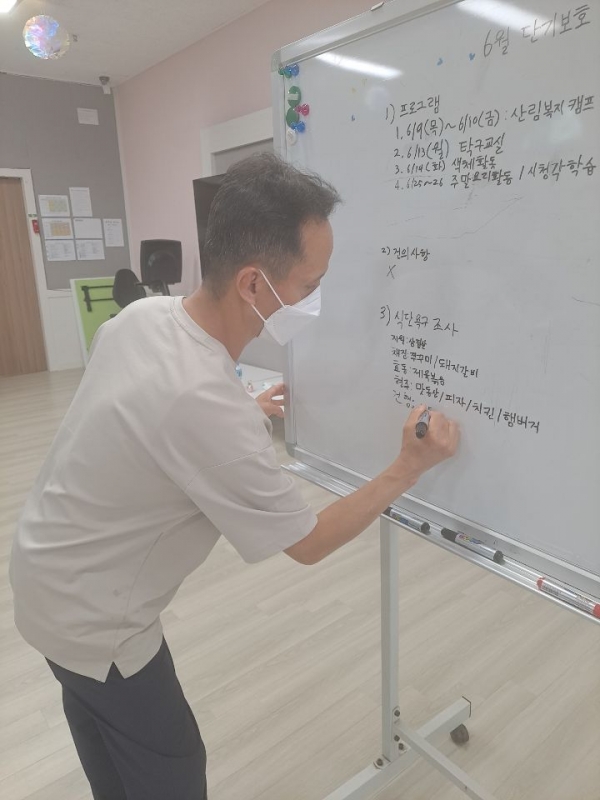 6월 단기보호
1) 프로그램
1. 6/9(목)~6/10(금) : 산림복지 캠프
2. 6/13(월) 탁구교실
3. 6/14(화) 색체활동
4. 6/25~26 주말요리활동 / 시청각 학습
2) 건의사항
X
3) 식단욕구 조사
삼겹살
채진: 쭈꾸미/돼지갈비
효동: 제육볶음
현주: 맛동산/피자/치킨/햄버거